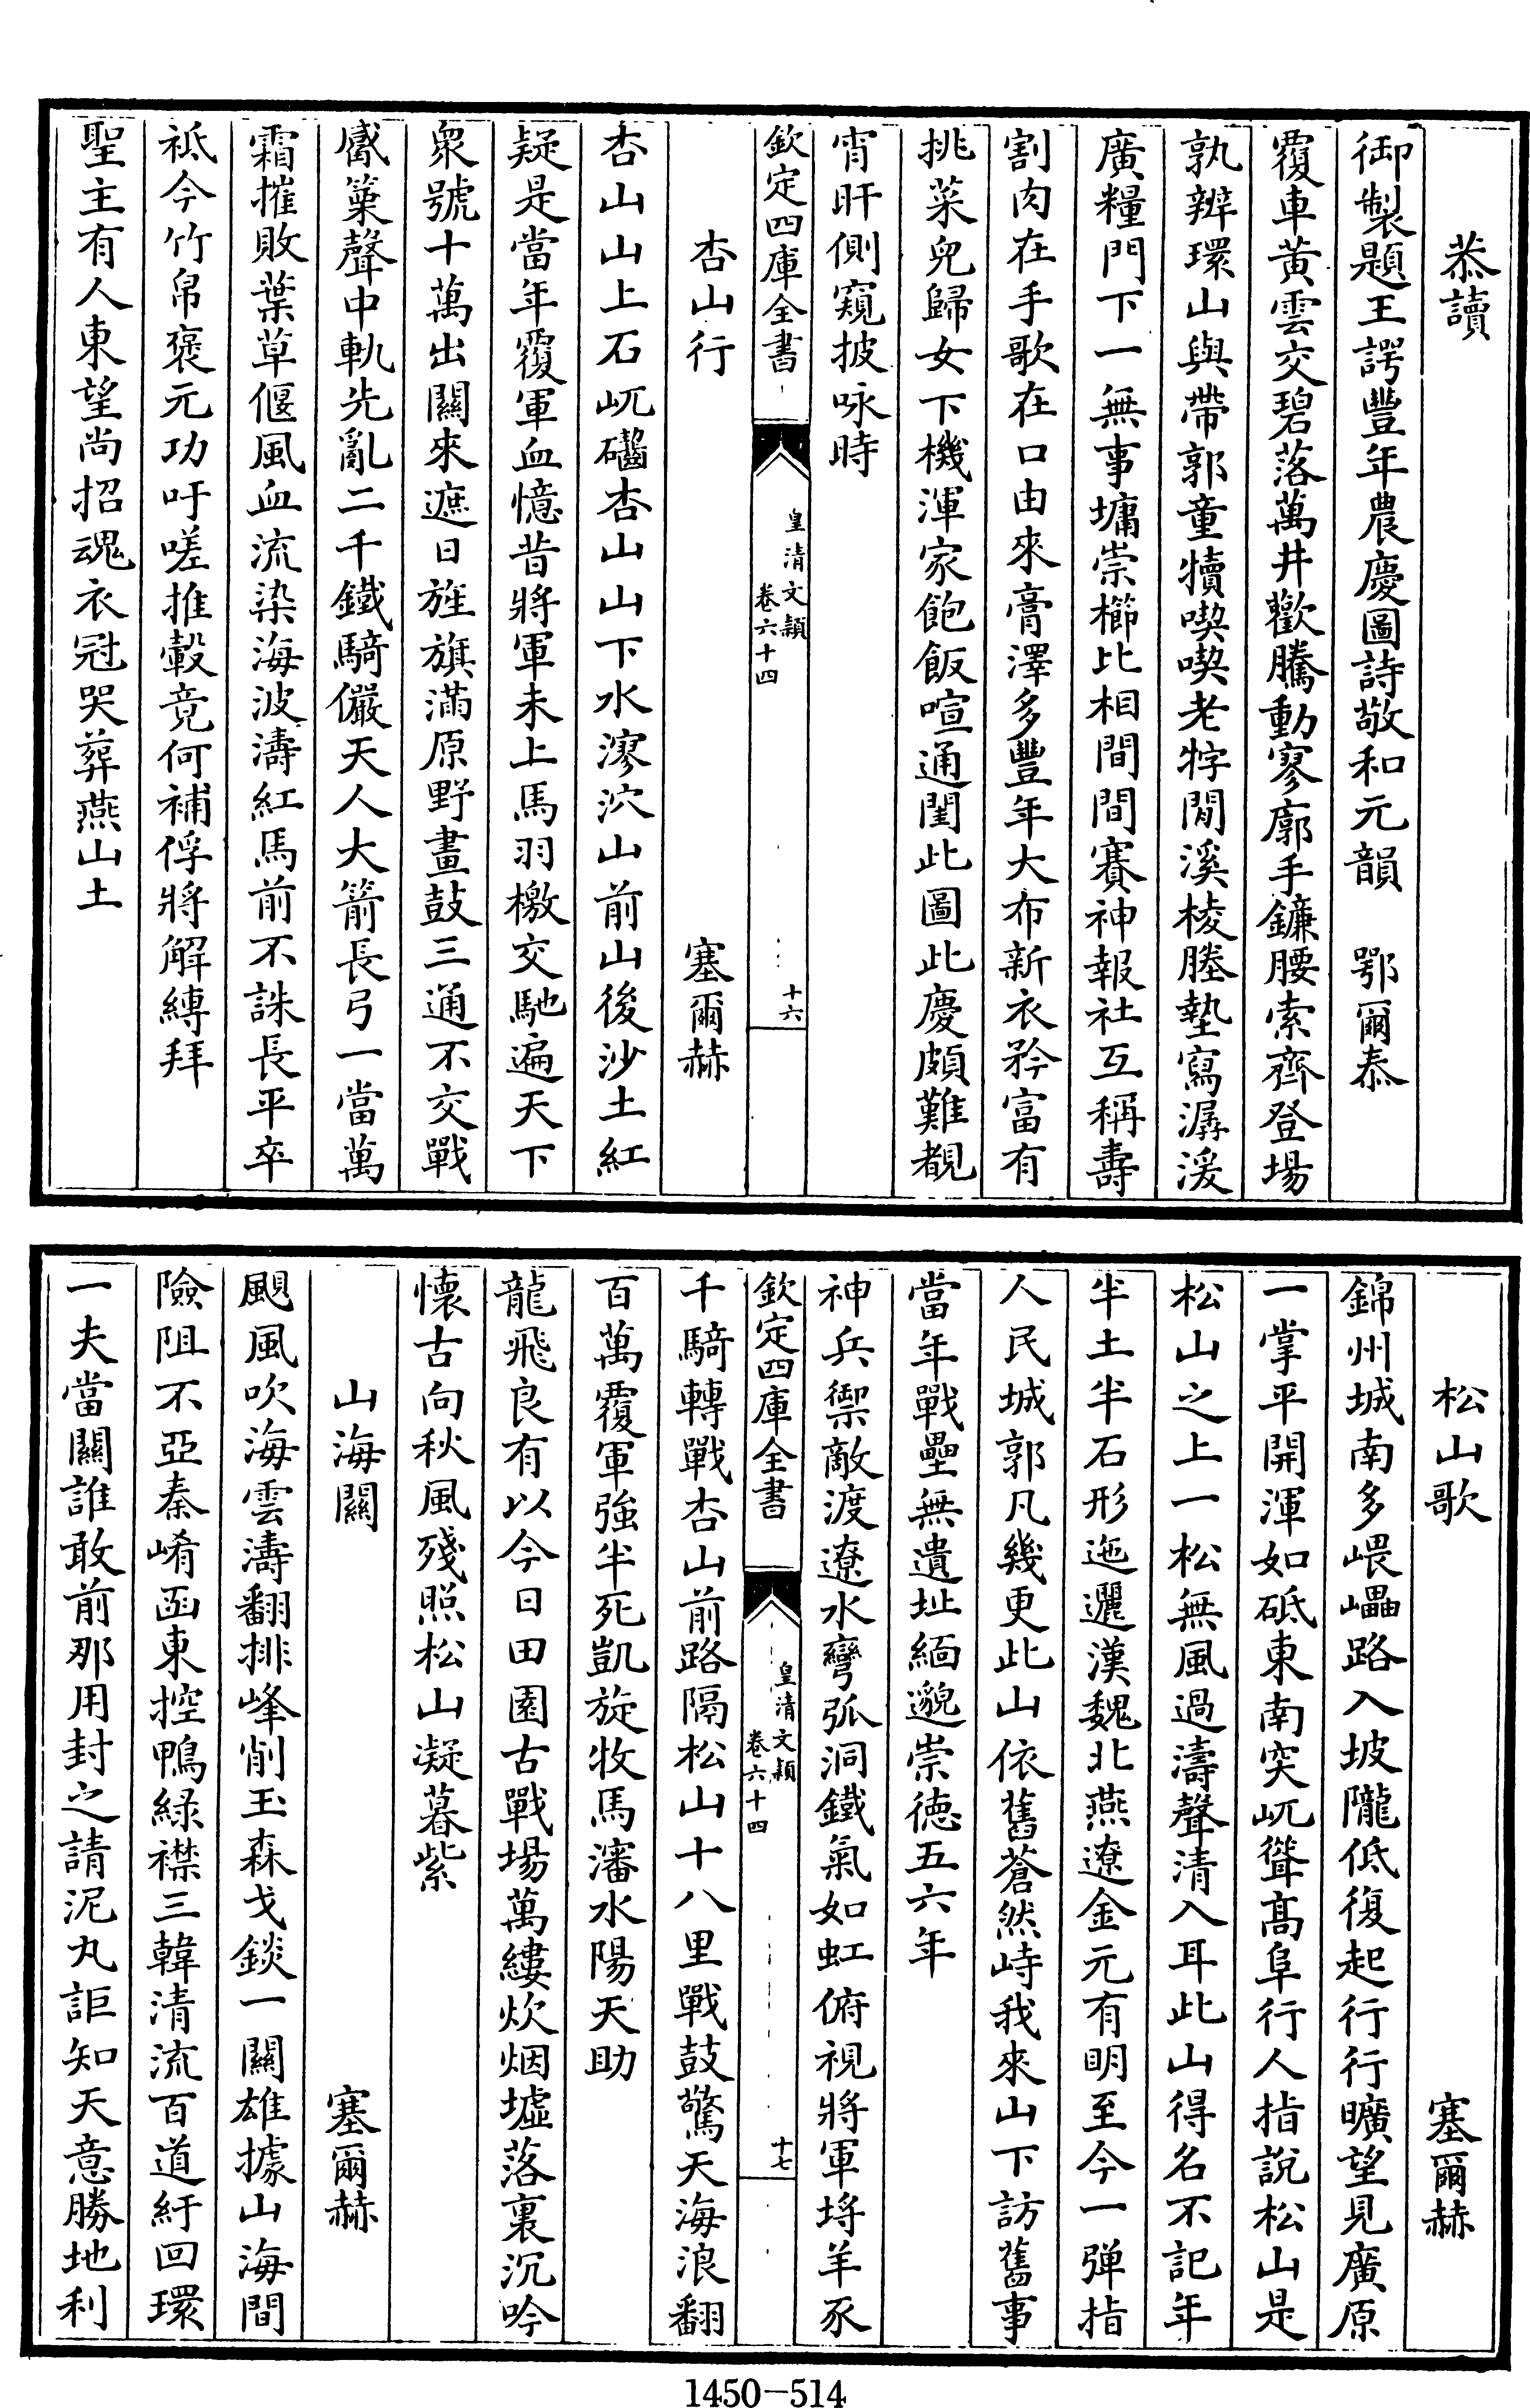 恭讀
御製題王諤豐年農慶圖詩敬和元韻　鄂爾泰
覆車黃雲交碧落萬井歡騰動寥廓手鐮腰索齊登場
孰辨環山與帶郭童犢喫喫老牸閒溪棱塍墊寫潺湲
廣糧門下一無事墉崇櫛比相間間賽神報社互稱壽
割肉在手歌在口由來膏澤多豐年大布新衣矜富有
挑菜兒歸女下機渾家飽飯喧通閨此圖此慶頗難覩
宵旰側窺披咏時
欽定四庫全書
皇清文穎
卷六十四
十六
杏山行　塞爾赫
杏山山上石屼𥗬杏山山下水漻泬山前山後沙土紅
疑是當年覆軍血憶昔將軍未上馬羽檄交馳遍天下
衆號十萬出關來遮日旌旗滿原野畫鼓三通不交戰
觱篥聲中軌先亂二千鐵騎儼天人大箭長弓一當萬
霜摧敗葉草偃風血流染海波濤紅馬前不誅長平卒
祗今竹帛褒元功吁嗟推轂竟何補俘將解縛拜
聖主有人東望尚招魂衣冠哭葬燕山土
松山歌　塞爾赫
錦州城南多嵔㠥路入坡隴低復起行行曠望見廣原
一掌平開渾如砥東南突屼聳高阜行人指說松山是
松山之上一松無風過濤聲清入耳此山得名不記年
半土半石形迤邐漢魏北燕遼金元有明至今一彈指
人民城郭凡幾更此山依舊蒼然峙我來山下訪舊事
當年戰壘無遺址緬邈崇德五六年
神兵禦敵渡遼水彎弧洞鐵氣如虹俯視將軍埒羊豕
欽定四庫全書
皇清文穎
卷六十四
十七
千騎轉戰杏山前路隔松山十八里戰鼓驚天海浪翻
百萬覆軍強半死凱旋牧馬瀋水陽天助
龍飛良有以今日田園古戰場萬縷炊烟墟落裏沉吟
懷古向秋風殘照松山凝暮紫
山海關　塞爾赫
颶風吹海雲濤翻排峰削玉森戈錟一關雄據山海間
險阻不亞秦崤函東控鴨綠襟三韓清流百道紆回環
一夫當關誰敢前那用封之請泥丸詎知天意勝地利
1450-514